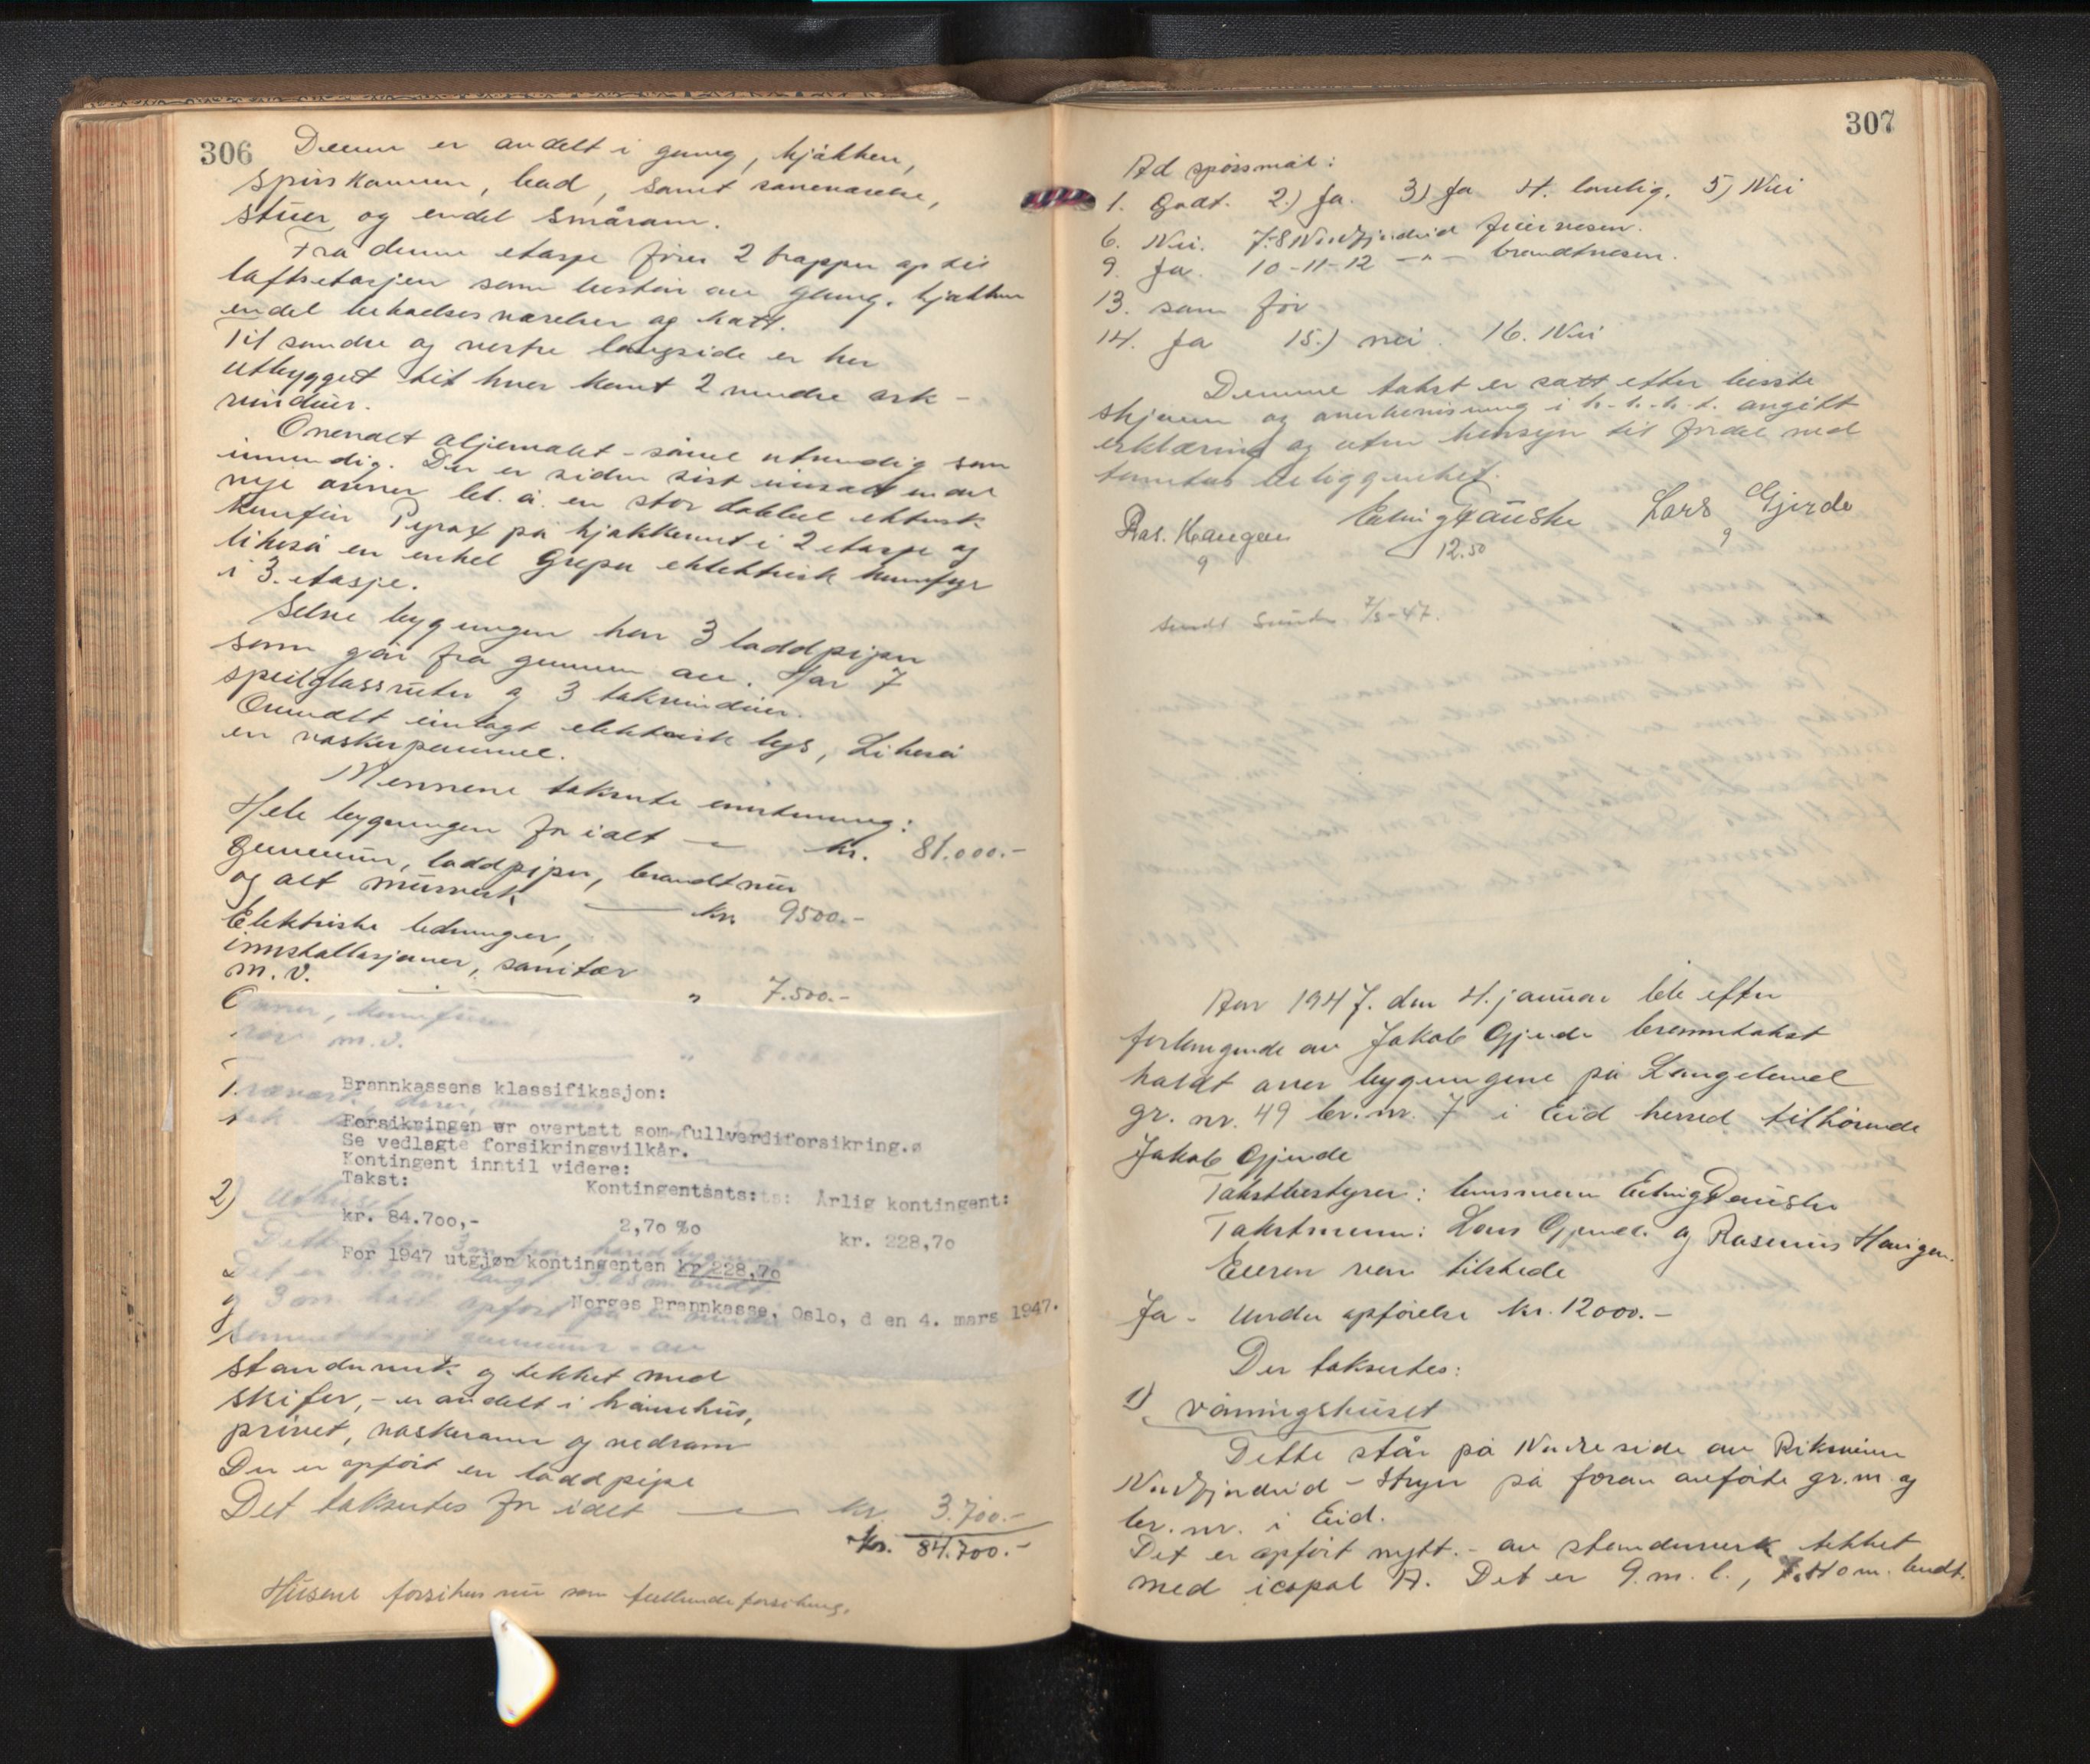 306
Denne er avdelt i gang, kjøkken,
spiskammer, bad, samt soveværelse,
stuer og endel smårom.
Fra denne etasje fører 2 trapper op til
loftsetasjen som består av gang, kjøkken
endel beboelsesværelser og kott.
Til søndre og vestre langside er her
utbygget til hver kant 2 mindre ark-
vinduer.
Overalt oljemalt - såvel utvendig som
innvendig. Der er siden sist innsatt endel
nye ovner bl. a. en stor dobbel elektrisk
komfür Pyrox på kjøkkenet i 2 etasje og
likeså en enkel Grepa elektrisk komfyr
i 3. etasje.
Selve bygningen har 3 loddpiper
som går fra grunnen av. Har 7
speilglassruter og 3 takvinduer.
Overalt innlagt elektrisk lys, Likeså
en vaskepanne.
Mennene taksute enstemmig:
Hele bygningen for ialt — kr. 81.000.-
Grunnmur, loddpiper, brandtmur
og alt murverk — kr. 9500.-
Elektriske ledninger,
innstallasjoner, sanitær
m.v. — " 7.500.-
Ovner, komfürer
rør m.v. " 8000
Trævark, dører, vinduer
tak
Brannkassens klassifikasjon:
Forsikringen er overtatt som fullverdiforsikring.
Se vedlagte forsikringsvilkår.
Kontingent inntil videre:
Takst: Kontingentsats: Årlig kontingent:
kr. 84.700,- 2,70 ‰ kr. 228,70
For 1947 utgjør kontingenten kr 228,70
Norges Brannkasse, Oslo, d en 4. mars 1947.
2) Uthuset
standverk og tekket med
skifer, - er avdelt i hønsehus,
privet, vaskerom og vedrom
Der er opført en loddpipe
Det taksertes for ialt — kr. 3.700.-
Kr. 84.700.-
Husene forsikres nu som fullverdiforsikring.
307
Ad spørsmål:
1. Godt. 2.) Ja. 3) Ja 4. lovelig. 5) Nei
6. Nei. 7-8 Nordfjordeid feiervesen.
9. Ja. 10-11-12 -"- brandtvesen.
13. som før
14. Ja 15.) nei. 16. Nei
Denne takst er satt efter beste
skjønn og overbevisning i h.h.t. avgitt
erklæring og uten hensyn til fordel ved
tomtens beliggenhet.
Ras. Haugen Erling Fauske Lars Gjerde
9 12.50 9
sendt 7/3-47.
Aar 1947. den 4. januar ble efter
forlangende av Jakob Gjerde branntakst
holdt over bygningene på Langeland
gr. nr. 49 br. nr. 7 i Eid herred tilhørende
Jakob Gjerde
Takstbestyrer: lensmenn Erling Fauske
Takstmenn: Lars Gjerde og Rasmus Haugen.
Eieren var tilstede
Ja - Under opførelse kr. 12000.-
Der taksertes:
1) Våningshuset
Dette står på Nordre side av Riksveien
Nordfjordeid - Stryn på foran anførte gr. nr. og
br. nr. i Eid.
Det er opført nytt. - av stenderverk tekket
med icopal A. Det er 9. m. l., 7.40 m. bredt.